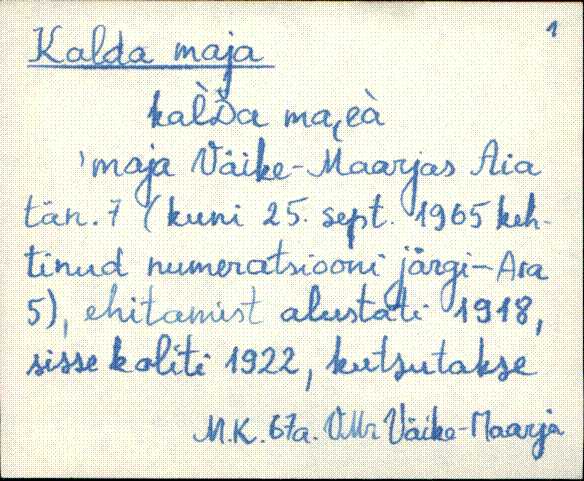 1
Kalda maja
kaL̀D̆a ma,eà
'maja Väike-Maarjas Aia
tän. 7 (kuni 25. sept. 1965 keh-
tinud numeratsiooni järgi – Aia
5), ehitamist alustati 1918,
sisse koliti 1922, kutsutakse
M.K. 67a. VMr Väike-Maarja